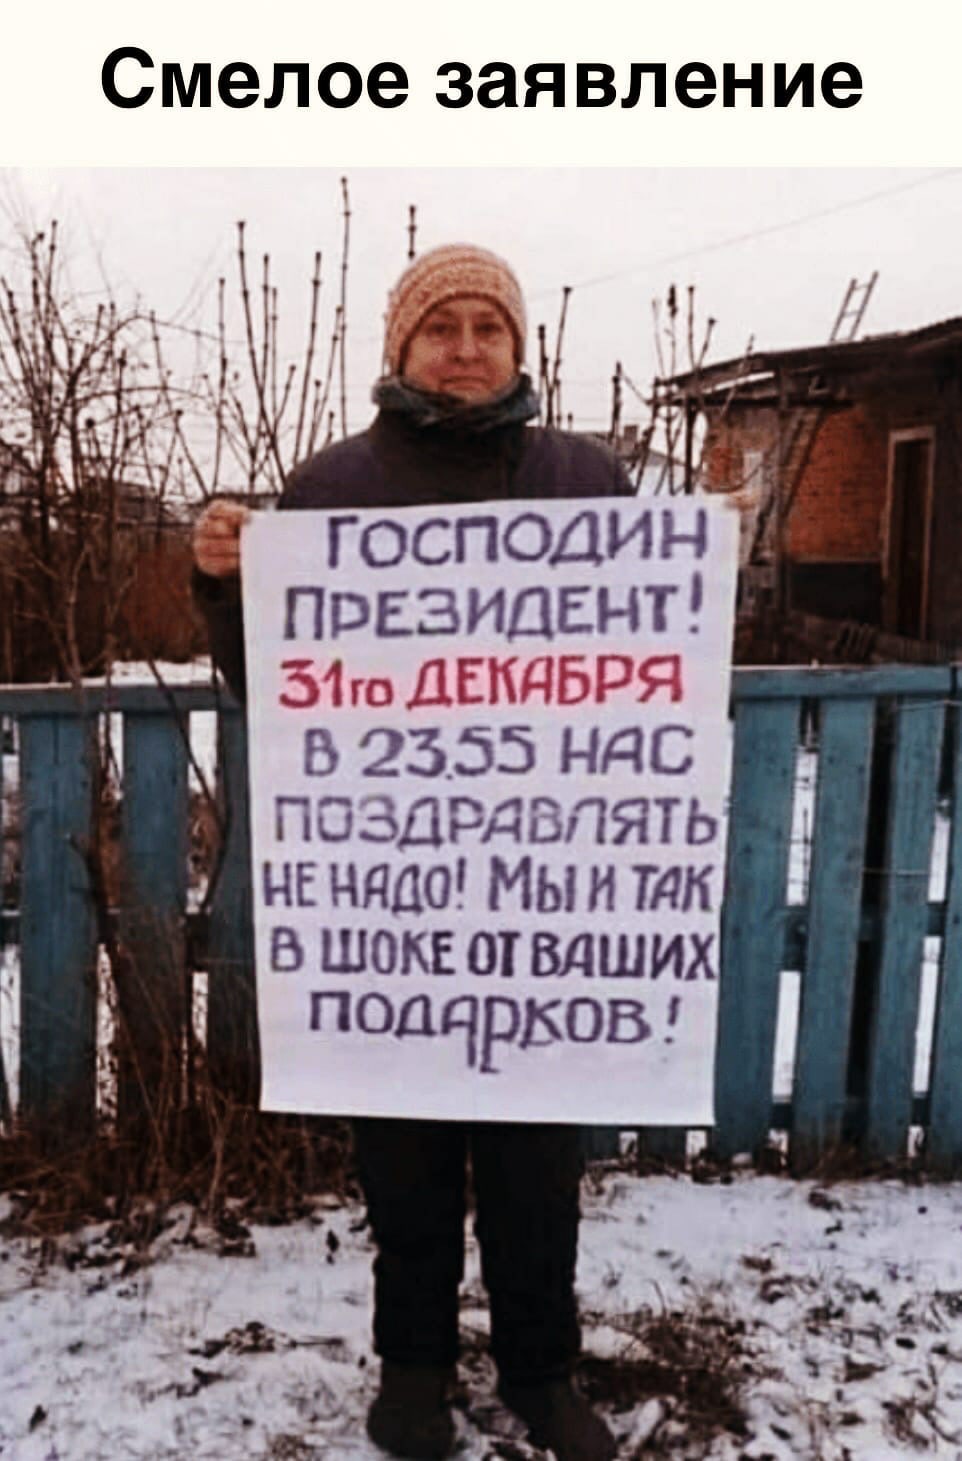 Смелое заявление
ГОСПОДИН
ПРЕЗИДЕНТ!
31го ДЕКАБРЯ
В 23.55 НАС
ПОЗДРАВЛЯТЬ
НЕ НАДО! МЫ И ТАК
В ШОКЕ ОТ ВАШИХ
ПОДАРКОВ!